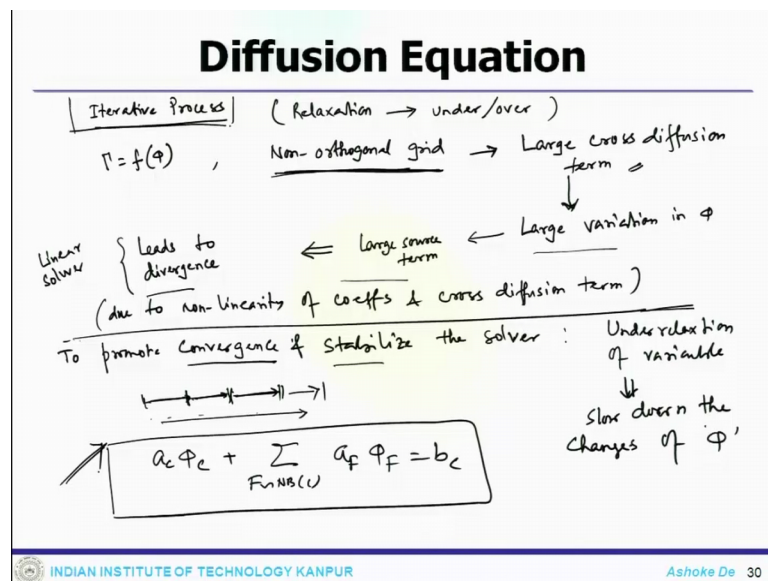 Diffusion Equation
Iterative Process (Relaxation → under/over)
Γ = f(φ) , Non-orthogonal grid → Large cross diffusion term
Large variation in φ
Linear solver { Leads to divergence ⇐ Large source term ←
(due to non-linearity of coeffs & cross diffusion term)
To promote convergence & stabilize the solver : Underrelaxtion of variable
⇓
Slow down the changes of 'φ'
a_c φ_c + Σ_{F∼NB(c)} a_F φ_F = b_c
INDIAN INSTITUTE OF TECHNOLOGY KANPUR
Ashoke De 30